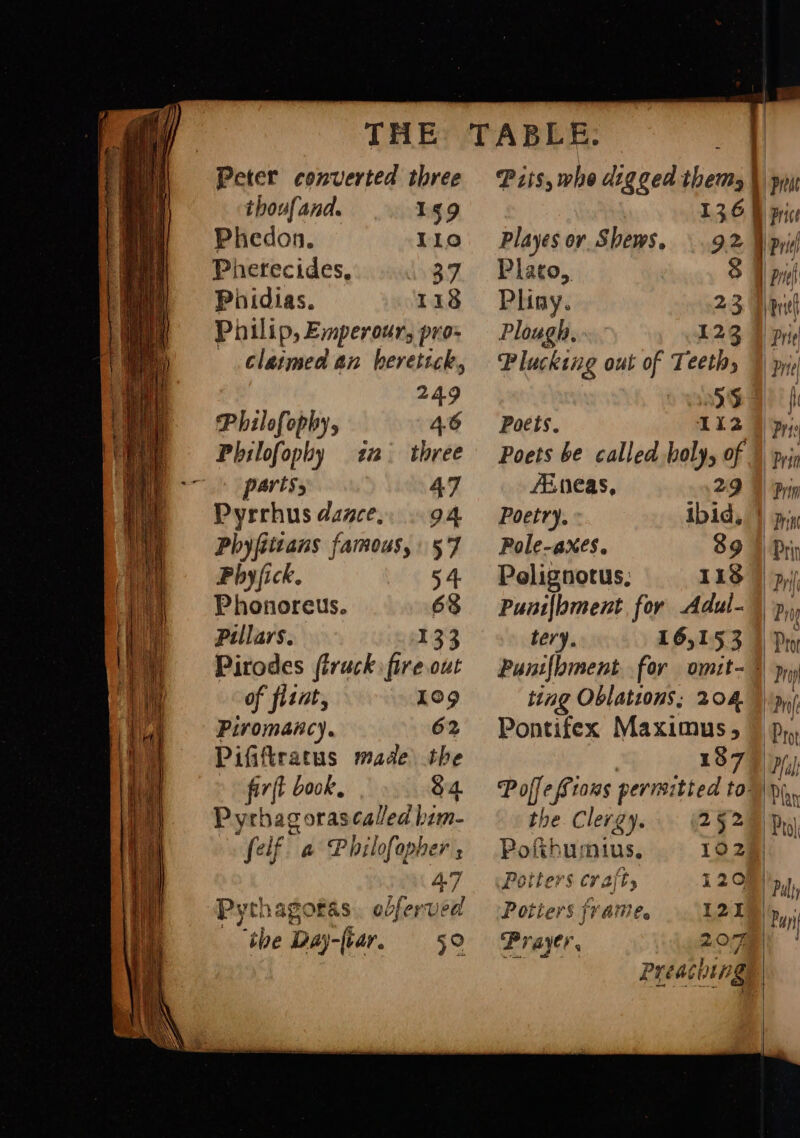 THE TABLE.
Peter converted three
thouſand. 159
Phedon. 110
Pherecides, 37
Phidias. 118
Philip, Emperour, pro-
claimed an heretick,
249
Philoſophy, 46
Philoſophy in three
parts, 47
Pyrrhus dance, 94
Phyſitians famous, 57
Phyſick. 54
Phonoreus. 68
Pillars. 133
Pirodes ſtruck fire out
of flint, 109
Piromancy. 62
Piſiſtratus made the
firſt book. 84
Pythagoras called him-
ſelf a Philoſopher,
47
Pythagoras obſerved
the Day-ſtar. 50
Pits, who digged them,
136
Playes or Shews. 92
Plato, 8
Pliny. 23
Plough. 123
Plucking out of Teeth,
55
Poets. 112
Poets be called holy, of
Æneas, 29
Poetry. ibid.
Pole-axes. 89
Polignotus, 118
Puniſhment for Adul-
tery. 16,153
Puniſhment for omit-
ting Oblations, 204
Pontifex Maximus,
187
Poſſeſſions permitted to
the Clergy. 252
Poſthumius. 102
Potters craft, 120
Potters frame. 121
Prayer. 207
Preaching